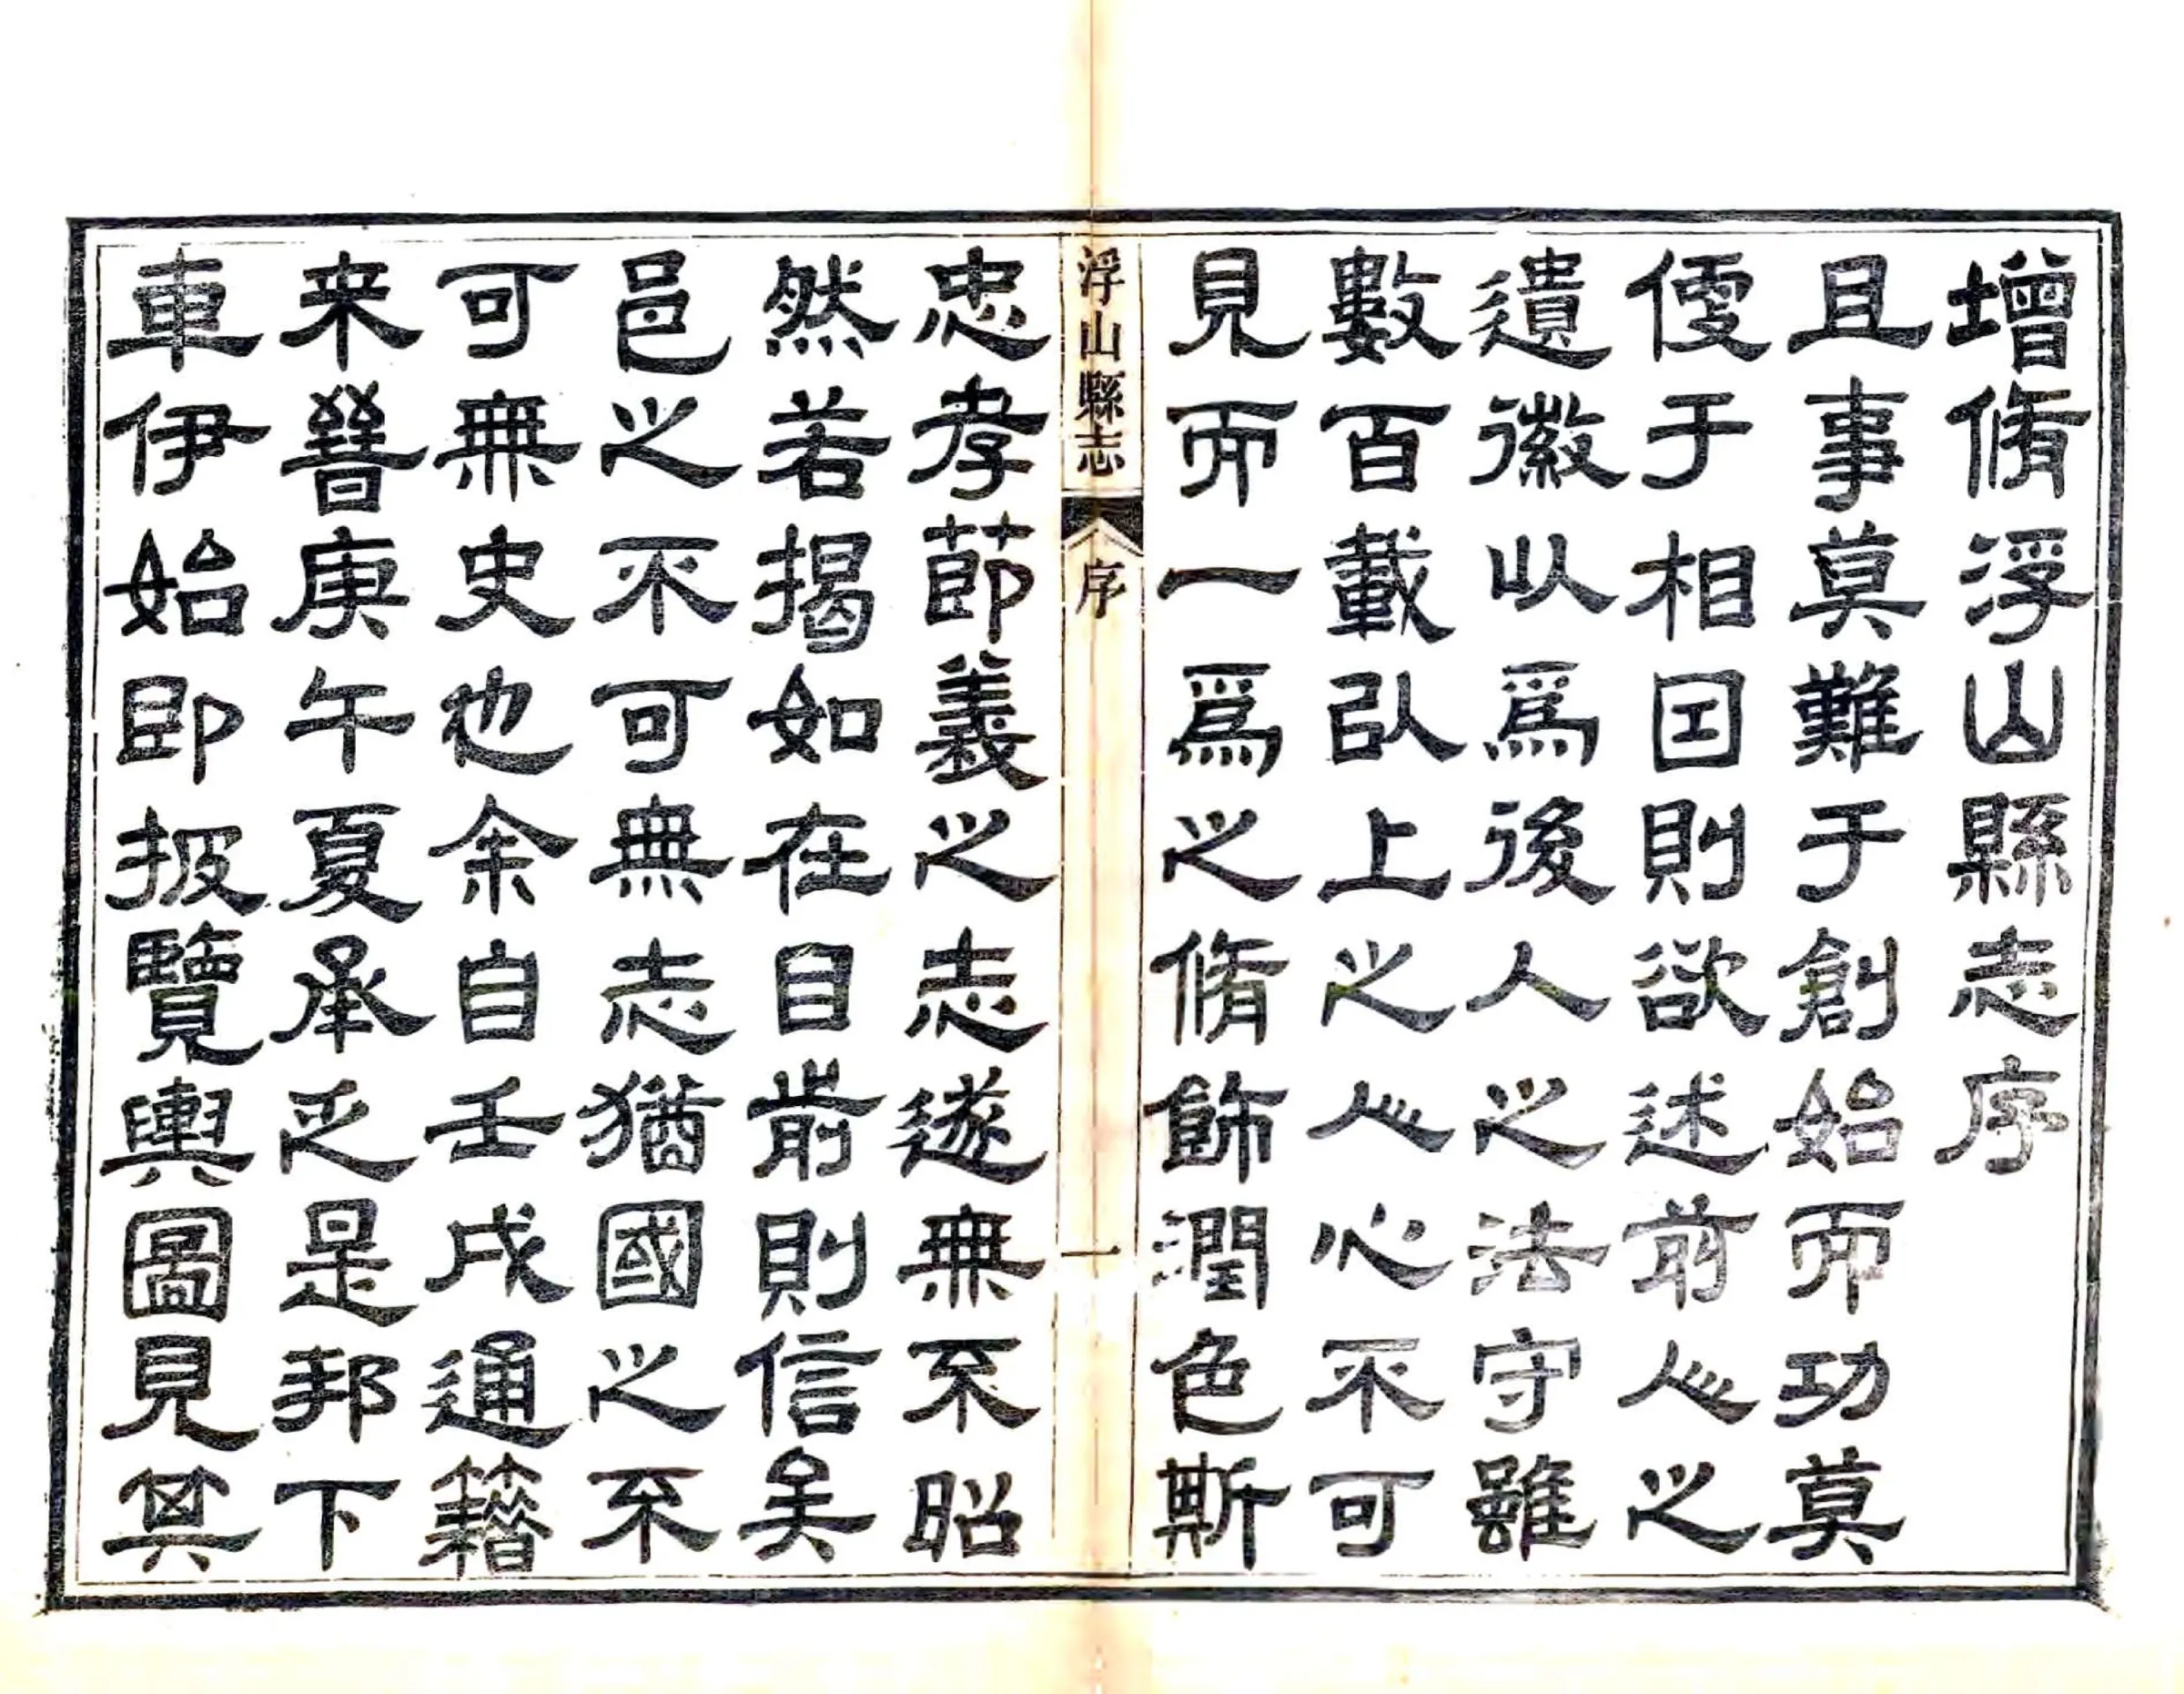 增脩浮山縣志序
且事莫難于創始而功莫
優于相因則欲述前人之
遺徽以為後人之法守雖
數百載以上之人心不可
見而一為之脩飾潤色斯
浮山縣志
序
一
忠孝節義之志遂無不昭
然若揭如在目前則信矣
邑之不可無志猶國之不
可無史也余自壬戌通籍
来晉庚午夏承乏是邦下
車伊始即披覽輿圖見其